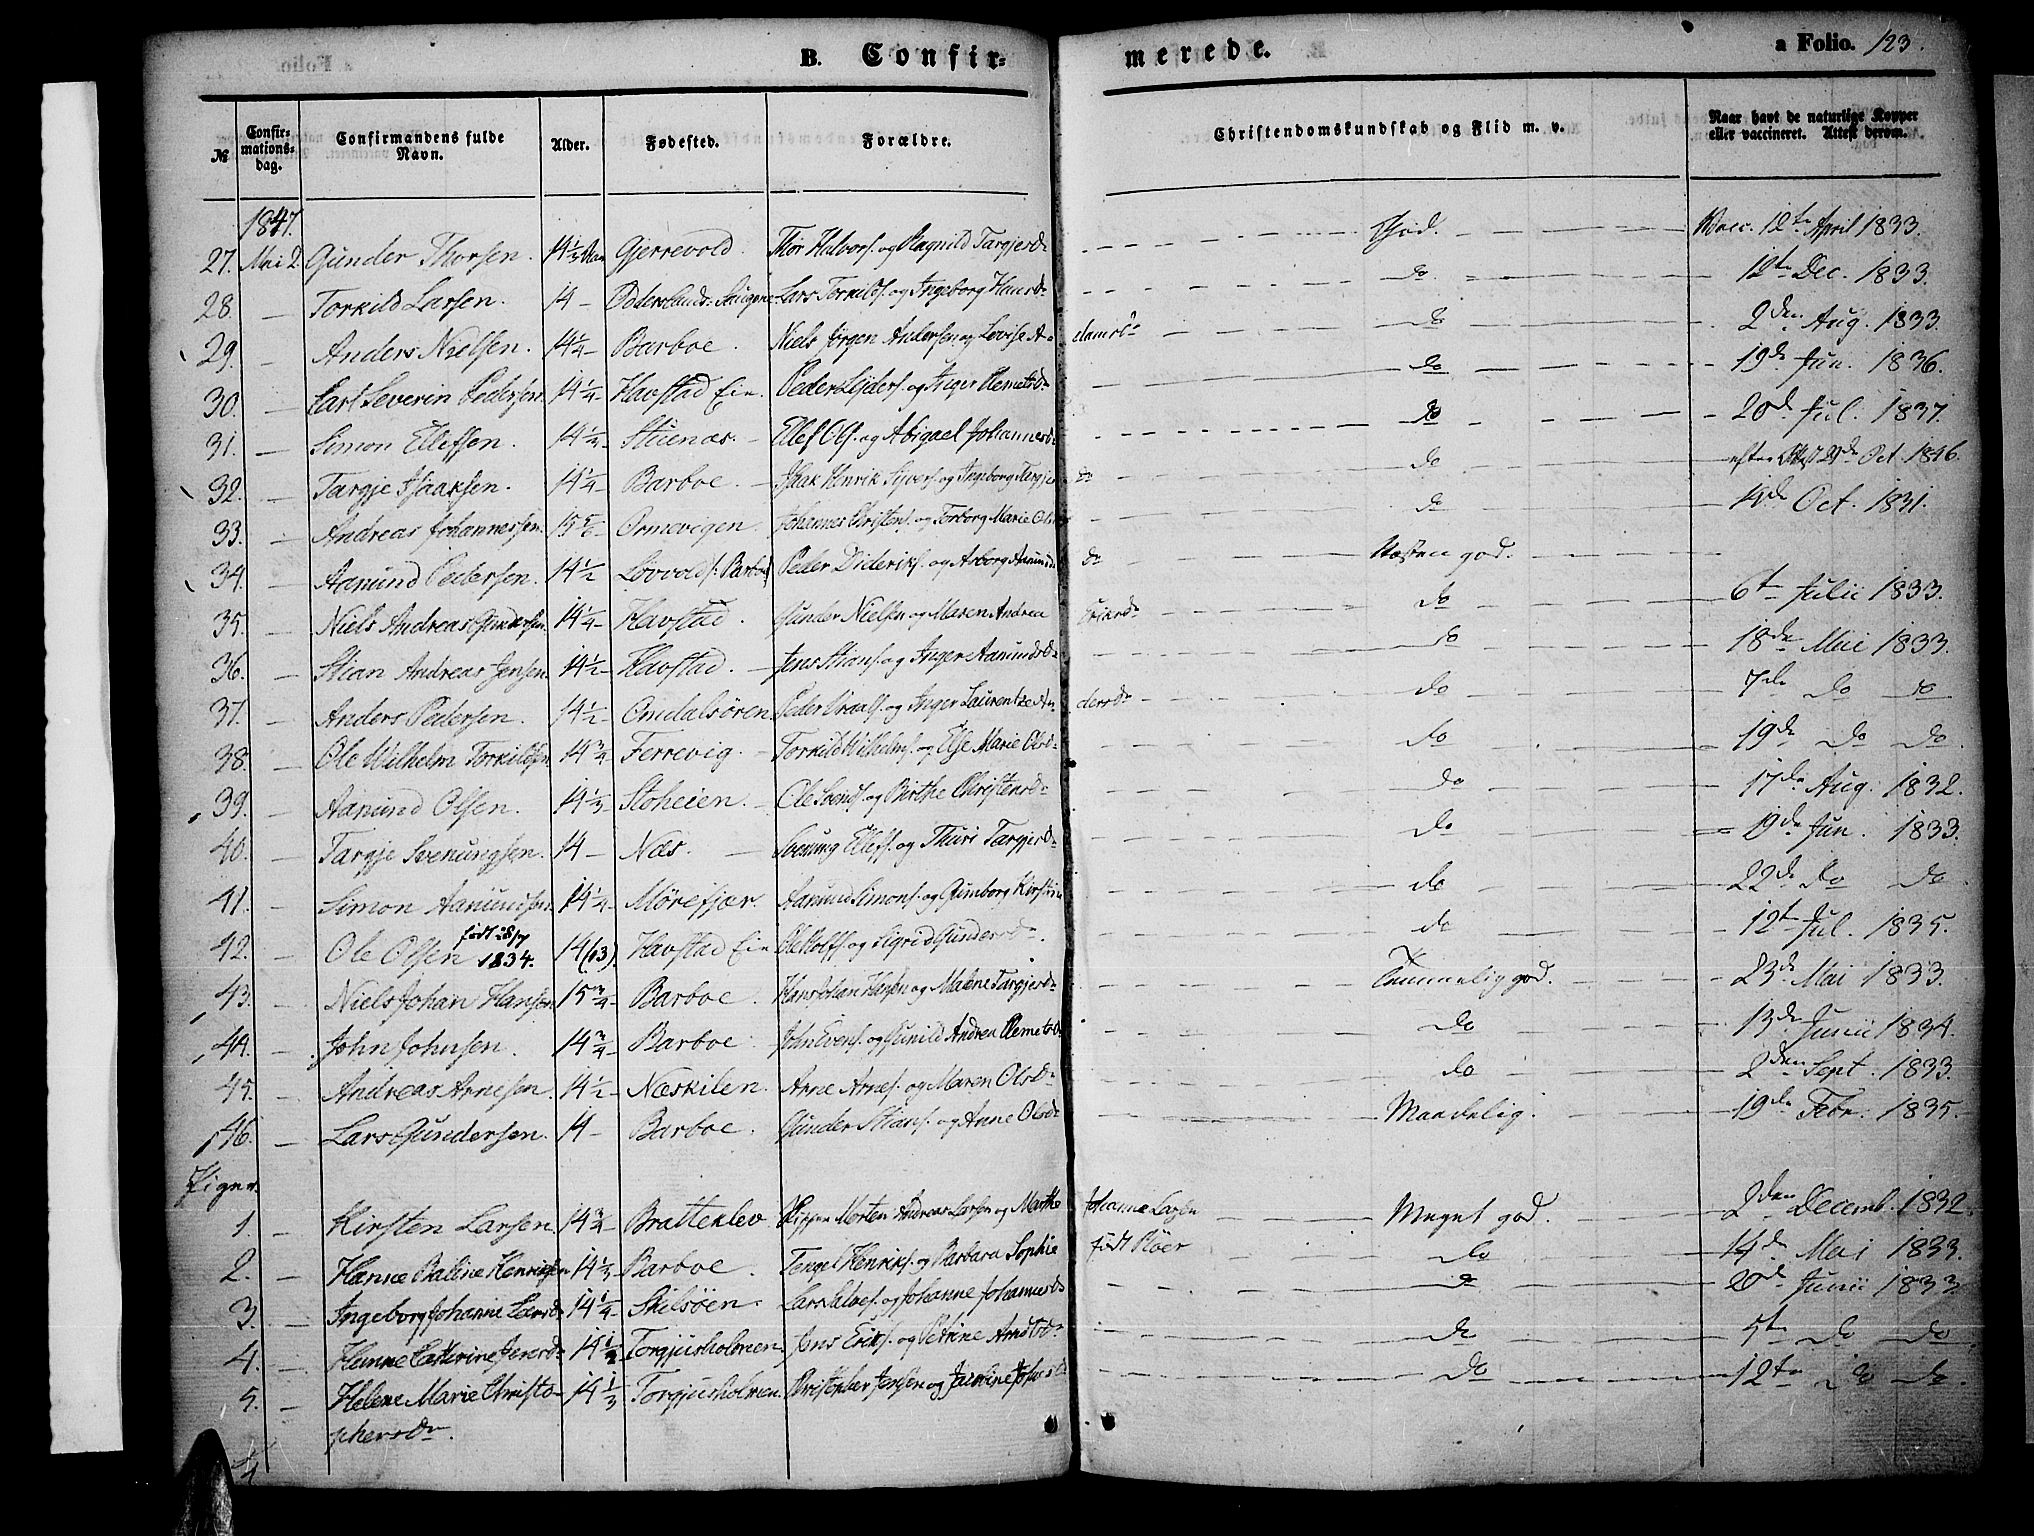 B. Confir=
merede.
a Folio. 123.
№ Confir=mations=dag. Confirmandens fulde Navn. Alder. Fødested. Forældre. Christendomskundskab og Flid m. v. Naar havt de naturlige Kopper eller vaccineret. Attest derom.
1847.
27. Mai 2. Gunder Thorsen. 14 1/3 Gjerrevold. Thor Halvors. og Ragnild Targjersd. God. Vacc. 12te April 1833.
28. – Torkild Larsen. 14 – Lars Torkilds. og Ingeborg Hansd. do 12te Dec. 1833.
29. – Anders Nielsen. 14 1/4 – Barboe. Niels Jörgen Andersen og Lovise Adamsd. do 2den Aug. 1833.
30. – Carl Severin Pedersen 14 1/4 – Havstad Eie. Peder og Inger Clemetsd. do 19de Jun. 1836.
31. – Simon Ellefsen. 14 1/2 – Stuenæs. – Ellef Ols. og Abigael Johannesd. do 20de Jul. 1837.
32. – Targje Isaaksen. 14 1/4 – Barboe – Isaak Henrik Syvers. og Ingeborg Targjesd. do efter Attest Oct 1846.
33. – Andreas Johannessen. 15 5/6 – Ormevigen. Johannes Christens. og Torborg Marie Olsd. do Oct. 1831.
34. – Aanund Pedersen. 14 1/2 – Lövvold (Barboe) Peder Dideriks. og Asborg Aanundsd. Næsten god.
35. – Niels Andreas Gundersen. 14 1/4 – Havstad. Gunder Nielsen og Maren Andrea do 6te Julii 1833.
36. – Stian Andreas Jensen 14 1/2 – Havstad. – Jens Stians. og Inger Aanundsd. do 18de Mai 1833.
37. – Anders Pedersen. 14 1/2 – Omdalsören. Peder og Inger Laurentze Andersd. do 7de do do
38. – Ole Wilhelm Torkildsen 14 3/4 – Ferrevig. – Torkild Wilhelms. og Else Marie Olsd. do 19de do do
39. – Aanund Olsen. 14 1/3 – Stoheien. – Ole Svends. og Birthe Christensd. do 17de Aug. 1832.
40. – Targje Svenungsen. 14 – Næs. – Svenung Ellefs. og Thuri Targjersd. do 19de Jun. 1833.
41. – Simon Aanundsen. 14 1/4 – Mörefjær. Aanund Simons. og Gunborg Kirstine do 22de do do
42. – Ole Olsen født 1834. 14 (13). Havstad Eie Ole og Sigrid Gundersd. do 12te Jul. 1835.
43. – Niels Johan Hansen 15 3/4 – Barboe. Hans Johan Hansen og Malene Targjersd. Temmelig god. 23de Mai 1833.
44. – John Johnsen. 14 3/4 – Barboe. John Evens. og Gunild Andrea Clemetsd. do 13de Junii 1834.
45. – Andreas Arnesen. 14 1/2 – Næskilen. Arne Arnes. og Maren Olsd. do 2den Sept. 1833.
46. – Lars Gundersen. 14 – Barboe. Gunder Stians. og Anne Olsd. Maadelig. 19de Febr. 1835.
Piger.
1. – Kirsten Larsen. 14 3/4 – Bratteklev Skipper Morten Andreas Larsen og Marthe Johanne Larsen født Flöer Meget god. 2den Decemb. 1832.
2. – Hanne Baline Henriksen 14 1/3 Barboe. Tengel Henriks. og Barbara Sophie do 14de Mai 1833.
3. – Ingeborg Johanne Larsd. 14 1/4 – Skilsöen. Lars og Johanne Johannesd. do 20de Junii 1833.
4. – Hanne Cathrine Jensd. 14 1/2 Torgjusholmen Jens Eriks. og Petrine Arntsd. do 5te do do
5. – Helene Marie Christophersd. 14 1/3 Torgjusholmen. Christopher Jensen og do 12te do do.